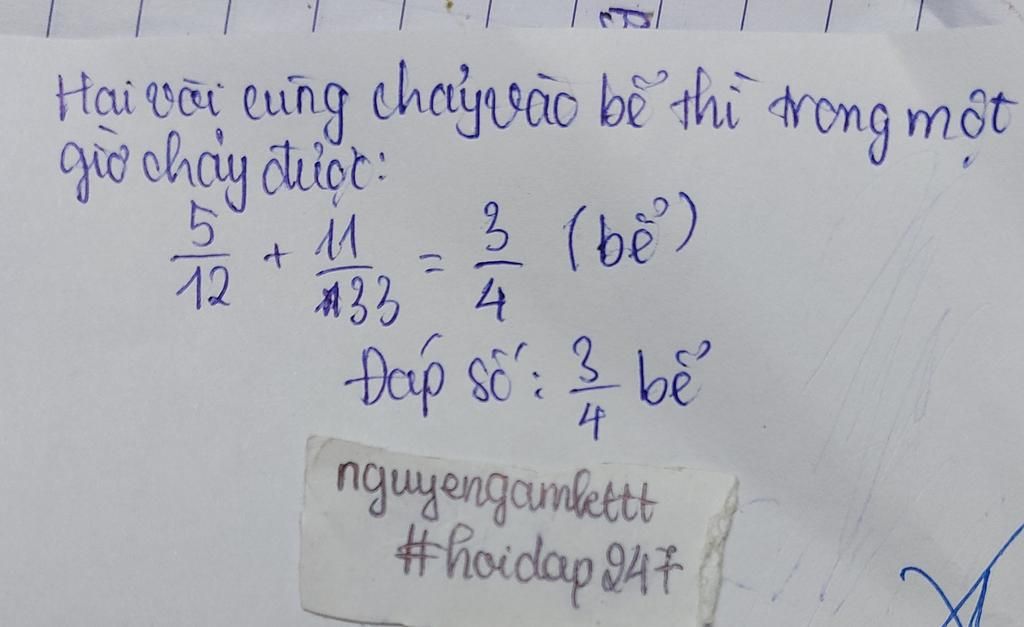 Hai vòi cùng chảy vào bể thì trong một
giờ chảy được:
5/12 + 11/33 = 3/4 (bể)
Đáp số: 3/4 bể
nguyengamkttt
#hoidap247